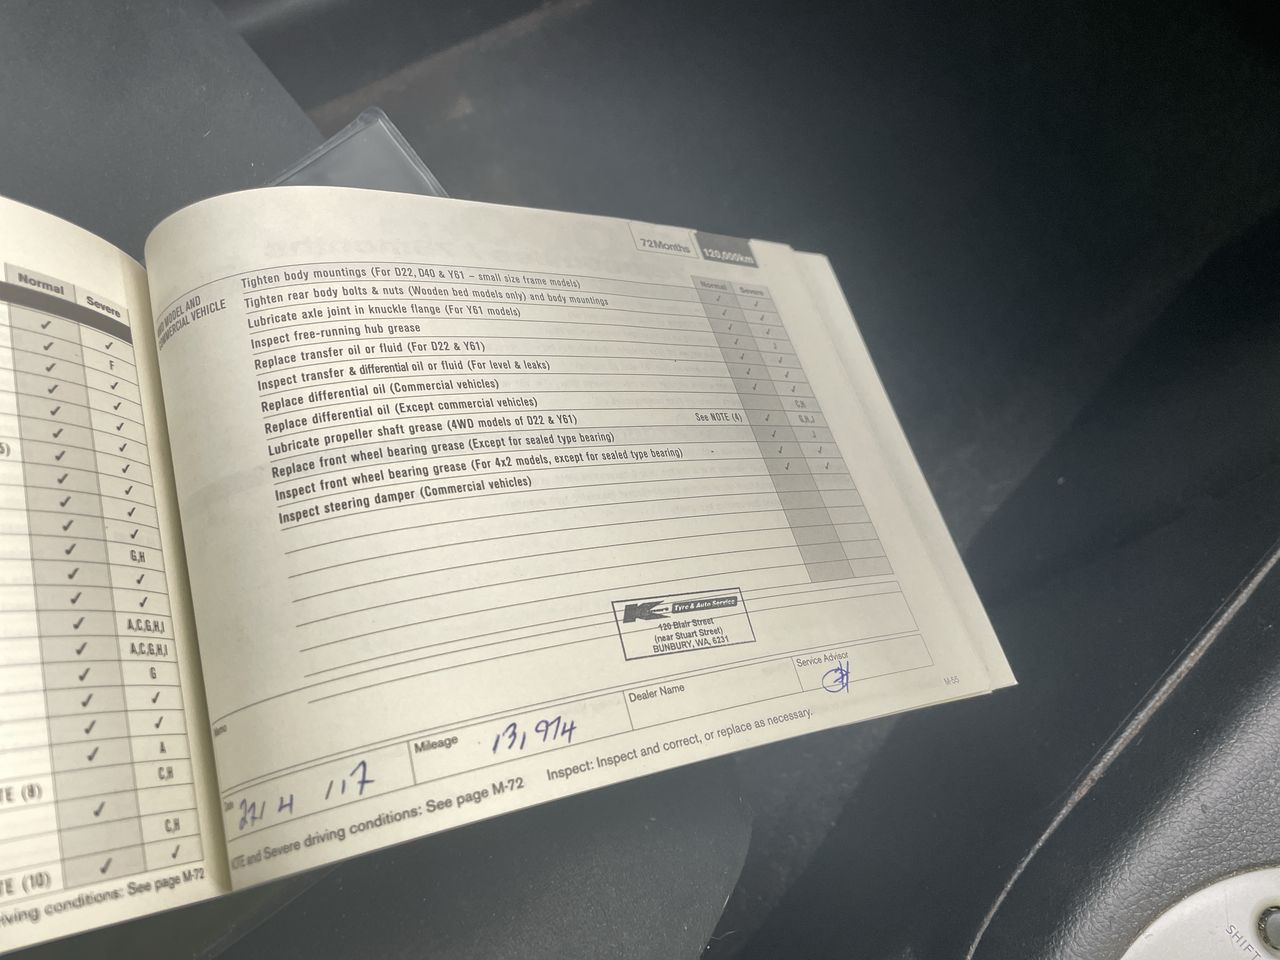 Normal
Severe
F
G,H
A,C,G,H,I
A,C,G,H,I
G
A
C,H
C,H
TE (8)
TE (10)
riving conditions: See page M-72
72Months
120,000km
Normal
Severe
4WD MODEL AND
COMMERCIAL VEHICLE
Tighten body mountings (For D22, D40 & Y61 – small size frame models)
Tighten rear body bolts & nuts (Wooden bed models only) and body mountings
Lubricate axle joint in knuckle flange (For Y61 models)
Inspect free-running hub grease
Replace transfer oil or fluid (For D22 & Y61)
Inspect transfer & differential oil or fluid (For level & leaks)
Replace differential oil (Commercial vehicles)
Replace differential oil (Except commercial vehicles)
Lubricate propeller shaft grease (4WD models of D22 & Y61)
Replace front wheel bearing grease (Except for sealed type bearing) See NOTE (4)
Inspect front wheel bearing grease (For 4x2 models, except for sealed type bearing)
Inspect steering damper (Commercial vehicles)
J
C,H
G,H,J
J
Kmart Tyre & Auto Service
120 Blair Street
(near Stuart Street)
BUNBURY, WA, 6231
Memo
Date 22/4/17
Mileage 13,974
Dealer Name
Service Advisor
NOTE and Severe driving conditions: See page M-72 Inspect: Inspect and correct, or replace as necessary.
M-55
SHIFT